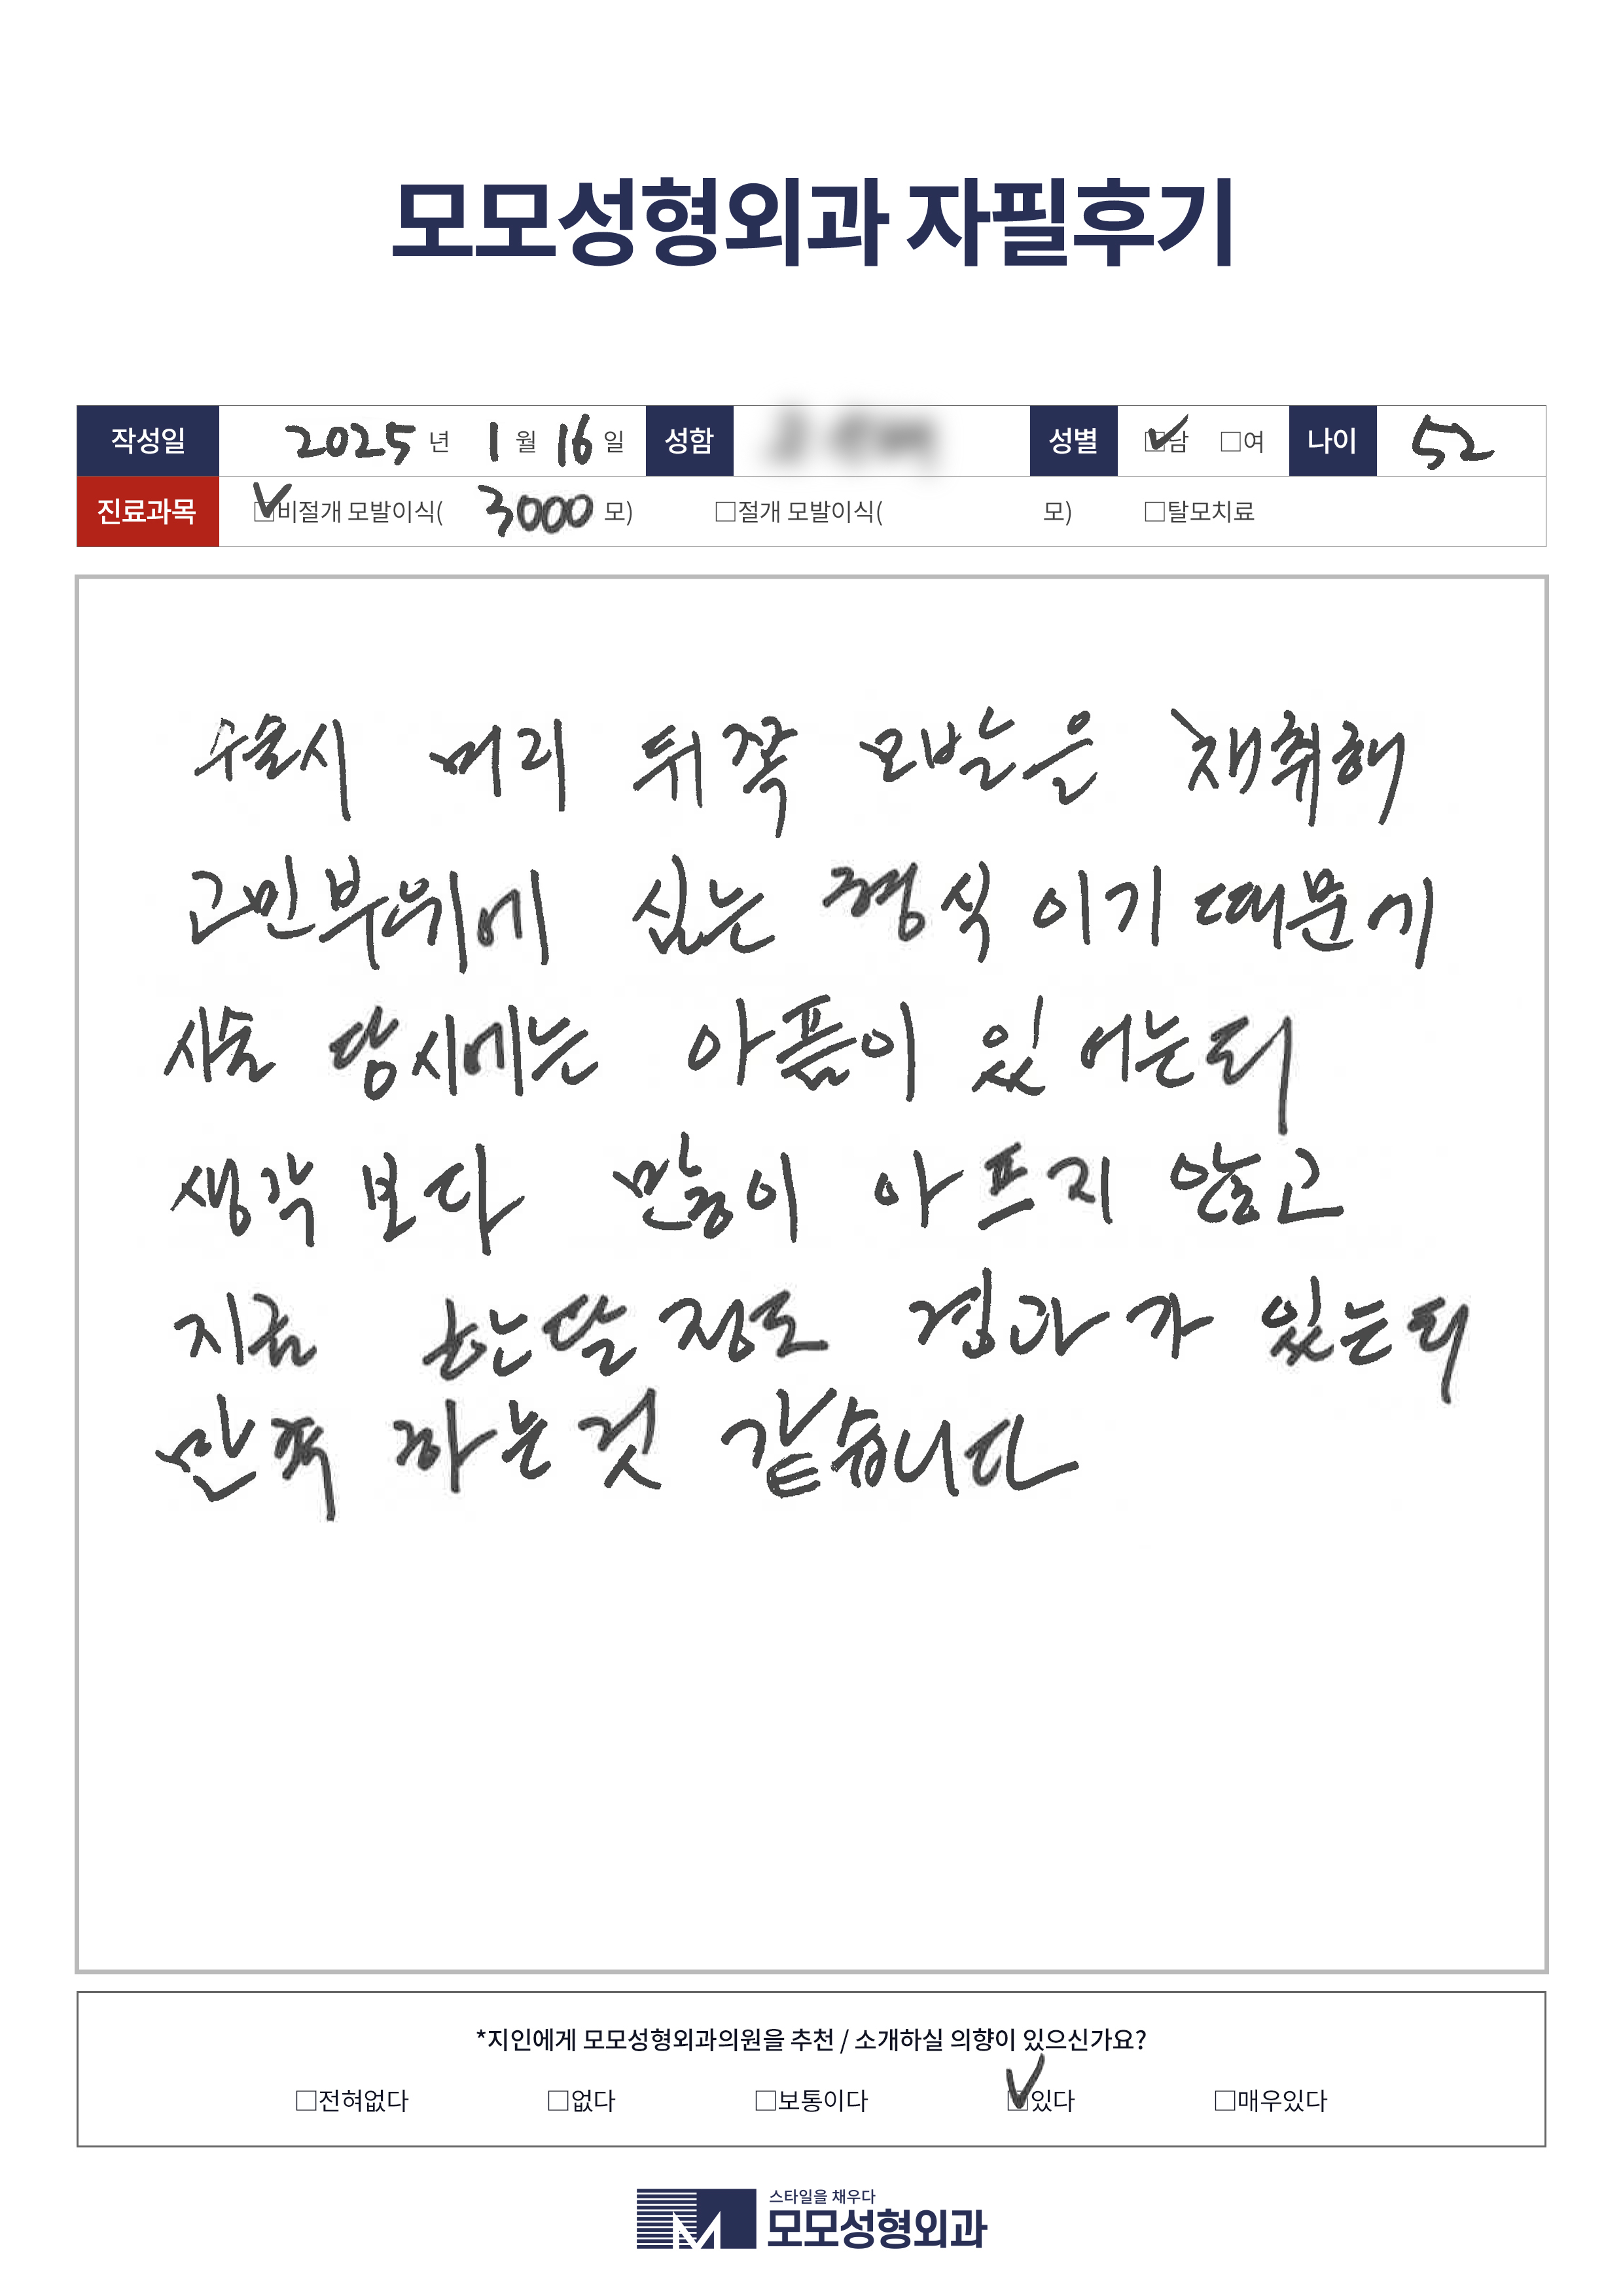 모모성형외과 자필후기
작성일 2025 년 1 월 16 일 성함 성별 ☑남 □여 나이 52
진료과목 ☑비절개 모발이식( 3000 모) □절개 모발이식( 모) □탈모치료
수술시 머리 뒤쪽 모발은 채취해
고민부위에 심는 형식 이기 때문에
시술 당시에는 아픔이 있어는데
생각 보다 많이 아프지 않고
지금 한달 정도 경과가 있는데
만족 하는것 같습니다
*지인에게 모모성형외과의원을 추천 / 소개하실 의향이 있으신가요?
□전혀없다 □없다 □보통이다 ☑있다 □매우있다
스타일을 채우다
모모성형외과